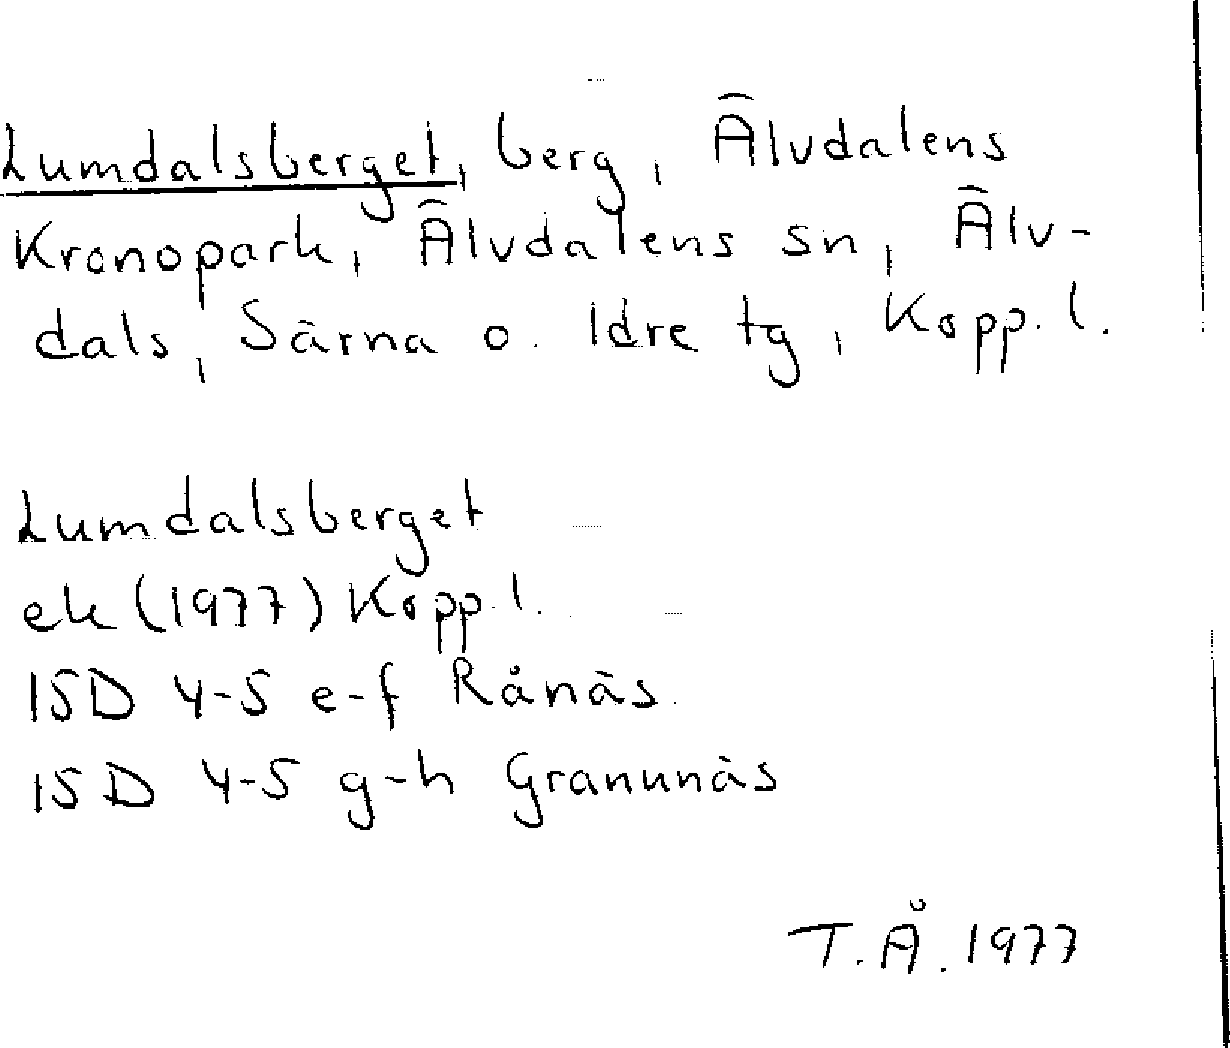 Lumdalsberget, berg, Älvdalens
Kronopark, Älvdalens sn, Älv-
dals, Särna o. Idre tg, Kopp. l.
Lumdalsberget
ek (1977) Kopp. l.
15D 4-5 e-f Rånäs.
15D 4-5 g-h Granunäs
T. Å. 1977